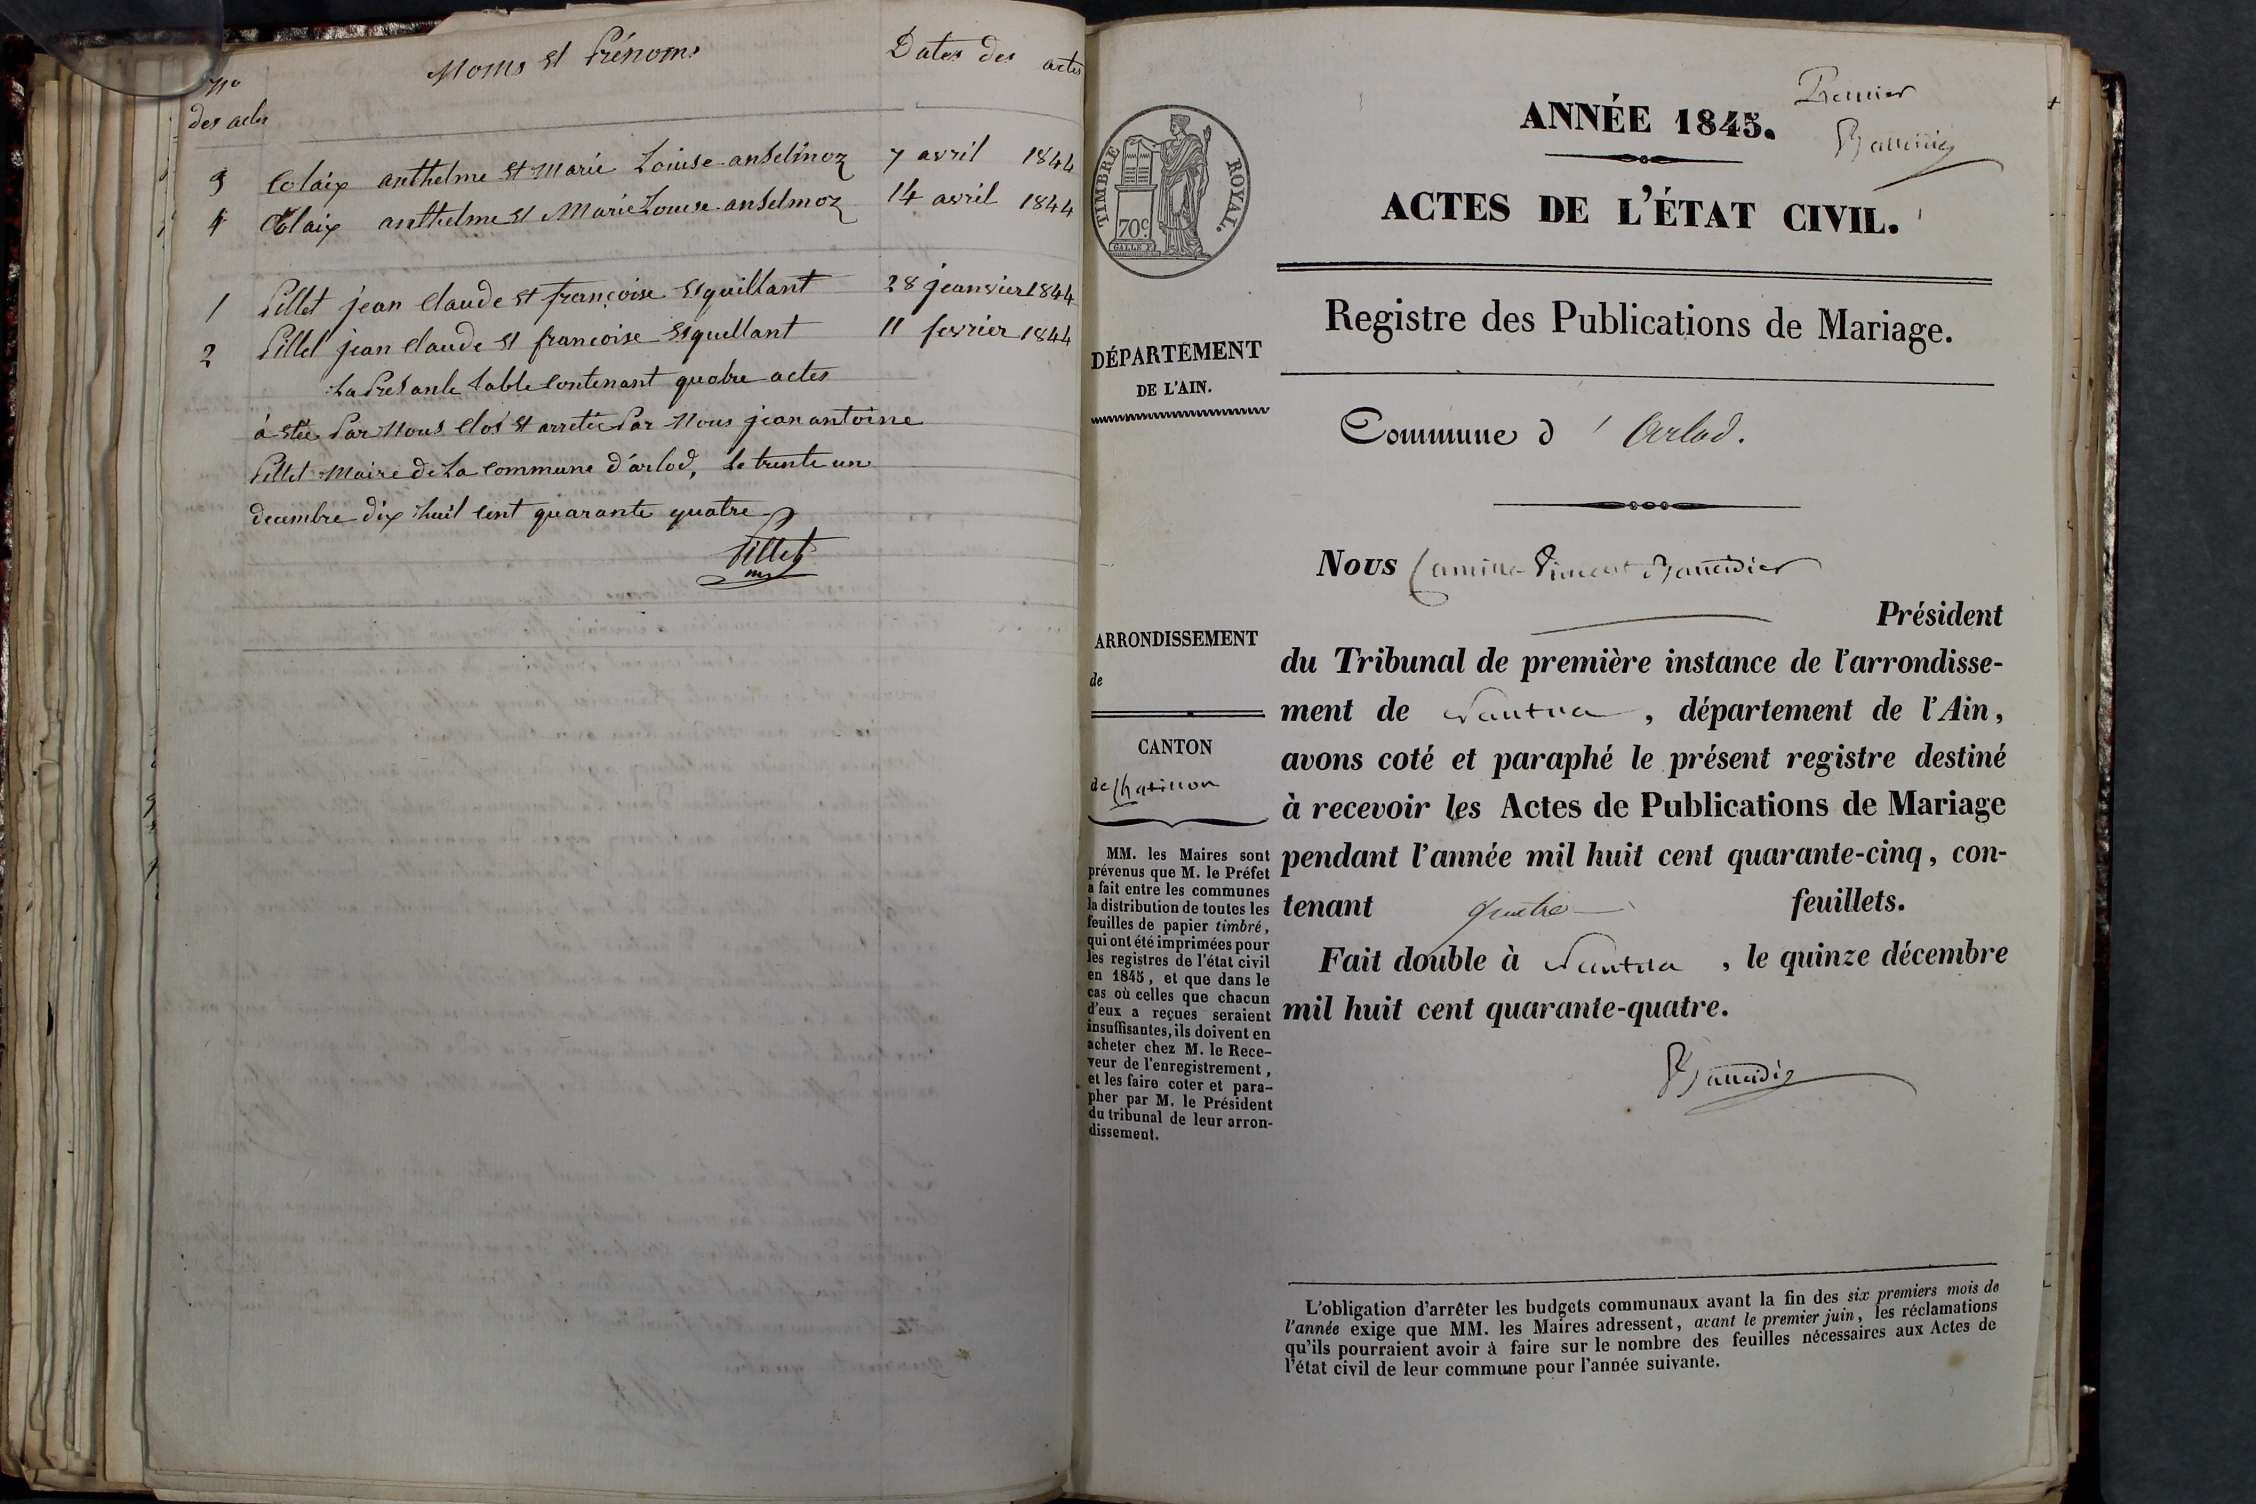 No
des actes
Noms et Prénoms
Dates des actes
3 Colaix anthelme et Marie Louise anselmoz 7 avril 1844
4 Colaix anthelme et Marie Louise anselmoz 14 avril 1844
1 Pillet jean Claude et françoise Esquillant 28 jeanvier 1844
2 Pillet jean Claude et françoise Esquillant 11 fevrier 1844
La Presante table Contenant quatre actes
à etée Par Nous Clos et arretée Par Nous jean antoine
Pillet Maire de La Commune d'arlod, Le trente un
decembre dix huit Cent quarante quatre
Pillet
TIMBRE ROYAL.
70 c.
DÉPARTEMENT
DE L'AIN.
ARRONDISSEMENT
de
CANTON
de Chatillon
MM. les Maires sont
prévenus que M. le Préfet
a fait entre les communes
la distribution de toutes les
feuilles de papier timbré,
qui ont été imprimées pour
les registres de l'état civil
en 1845, et que dans le
cas où celles que chacun
d'eux a reçues seraient
insuffisantes, ils doivent en
acheter chez M. le Rece-
veur de l'enregistrement,
et les faire coter et para-
pher par M. le Président
du tribunal de leur arron-
dissement.
Premier
ANNÉE 1845.
ACTES DE L'ÉTAT CIVIL.
Registre des Publications de Mariage.
Commune d' Arlod.
Nous Camille Vincent
Président
du Tribunal de première instance de l'arrondisse-
ment de Nantua, département de l'Ain,
avons coté et paraphé le présent registre destiné
à recevoir les Actes de Publications de Mariage
pendant l'année mil huit cent quarante-cinq, con-
tenant quatre feuillets.
Fait double à Nantua, le quinze décembre
mil huit cent quarante-quatre.
L'obligation d'arrêter les budgets communaux avant la fin des six premiers mois de
l'année exige que MM. les Maires adressent, avant le premier juin, les réclamations
qu'ils pourraient avoir à faire sur le nombre des feuilles nécessaires aux Actes de
l'état civil de leur commune pour l'année suivante.